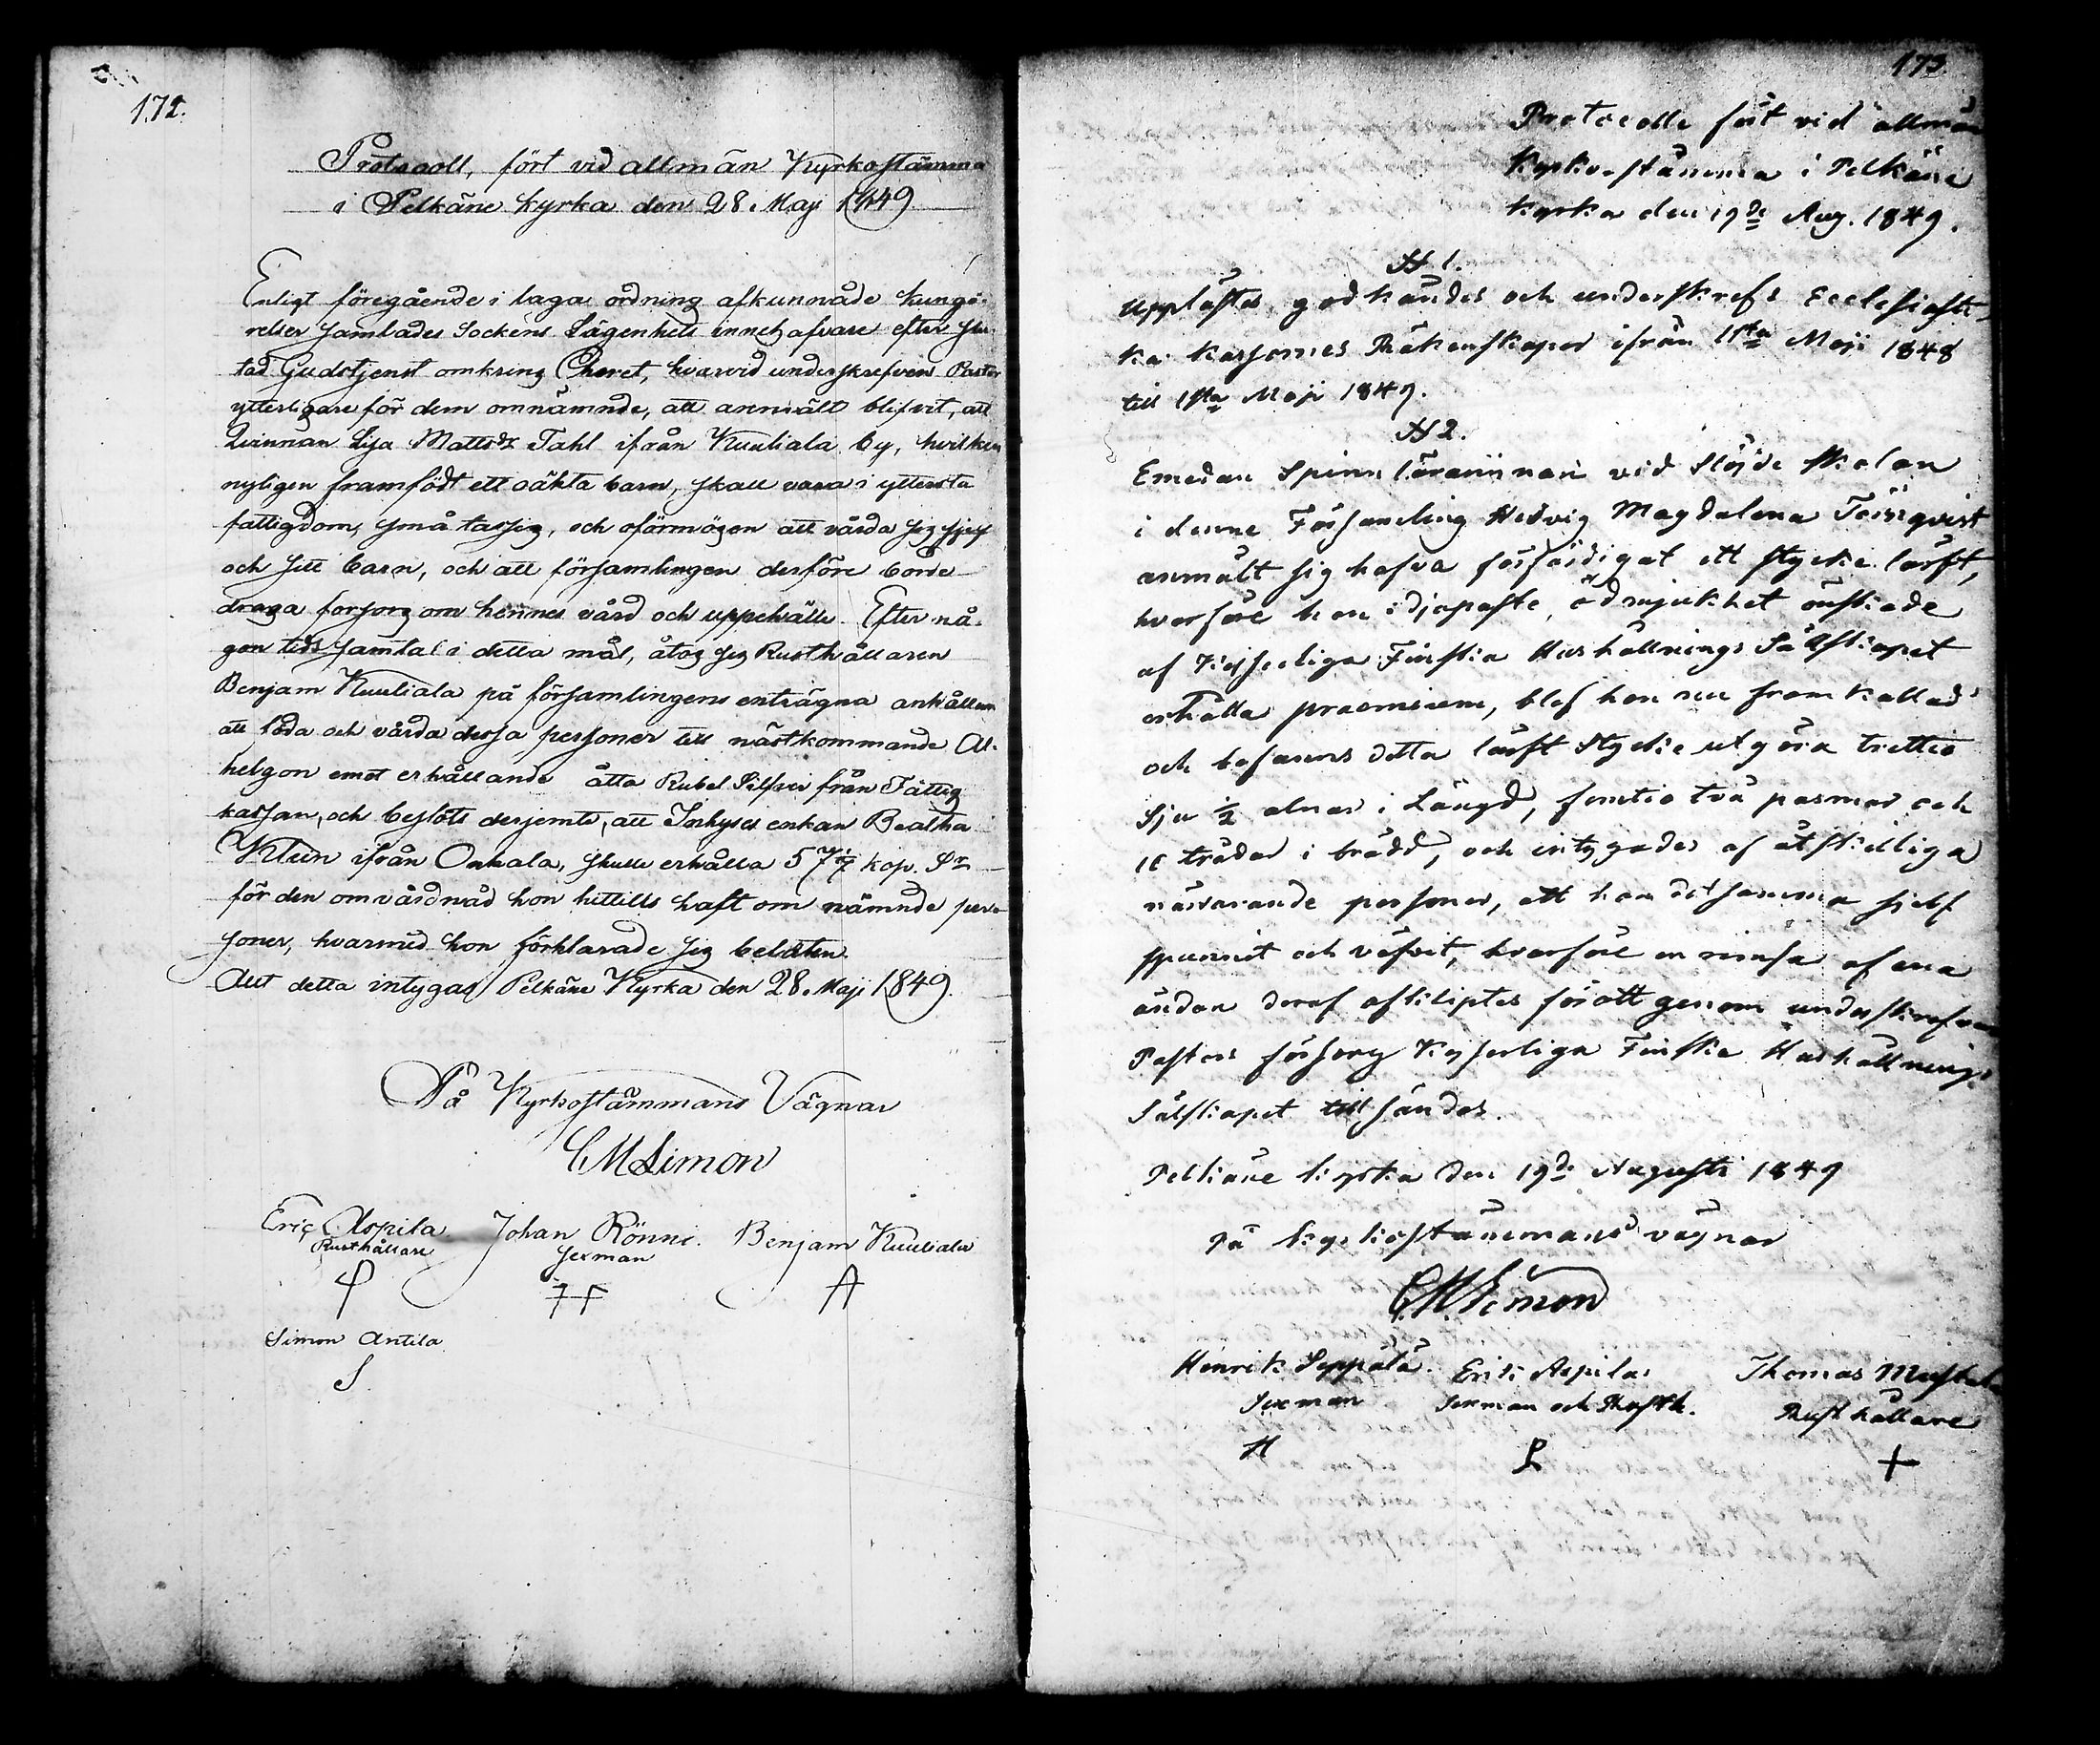 172.
Protocoll, fört vid allmän Kyrkostämma
i Pelkäne kyrka den 28. Maji 1849.
Enligt föregående i laga ordning afkunnade kungö-
relser samlades Sockens Lägenhets innehafvare efter slu-
tad Gudstjenst omkring Choret, hvarvid underskrefven Pastor
ytterligare för dem omnämnde, att anmält blifvit, att
Qvinnan Lisa Mattsdr Tahl ifrån Kuuliala by, hvilken
nyligen framfödt ett oäkta barn, skall vara i yttersta
fattigdom, och oförmögen att vårda sig sjelf
och sitt barn, och att församlingen derföre borde
draga försorg om hennes vård och uppehälle. Efter nå-
gon tids samtal i detta mål, åtog sig Rusthållaren
Benjam Kuuliala på församlingens enträgna anhållan
att föda och vårda dessa personer till nästkommande Al-
helgon emot erhållande åtta Rubel Silfver från Fattig
kassan, och beslöts derjemte, att Inhyses enkan Beatha
Klein ifrån Onkala, skulle erhålla 57 1/7 kop. Sr
för den omvårdnad hon hittills haft om nämnde per-
soner, hvarmed hon förklarade sig belåten.
Allt detta intygas, Pelkäne Kyrka den 28. Maji 1849.
På Kyrkostämmans Vägnar
CMSimon
Eric Aspila Johan Rönni. Benjam Kuuliala
Rusthållare Sexman
Simon Antila
S.
173.
Protocoll fört vid allmän
Kyrkostämma i Pelkäne
kyrka den 19de Aug. 1849.
№ 1.
Upplästes godkändes och underskrefs Ecclesiasti-
ka kassornes Räkenskaper ifrån 1sta Maji 1848
till 1sta Maji 1849.
№ 2.
Emedan Spinn lärarinnan vid Slöjde skolan
i denne Församling Hedvig Magdalena Törnqvist
anmält sig hafva förfärdigat ett stycke lärft,
hvarföre hon i djupaste ödmjukhet önskade
af Kejserliga Finska Hushållnings Sällskapet
erhålla praemium, blef hon nu framkallad
och befanns detta lärft stycke utgöra trettio
sju 1/2 alnar i Längd, femtio två pasmar och
16 trådar i brädd, och intygades af åtskilliga
närvarande personer, att hon detsamma sjelf
spunnit och väfvit, hvarföre en rimsa af ena
ändan deraf afkliptes för att genom underskrefven
Pastors försorg Kejserliga Finska Hushållnings
Sälskapet tillsändas.
Pelkäne kyrka den 19de Augusti 1849
På kyrkostämmans vägnar
C.M.Simon
Henrik Seppälä. Erik Aspila. Thomas Mustala
Sexman Sexman och Rusth. Rusthållare
H